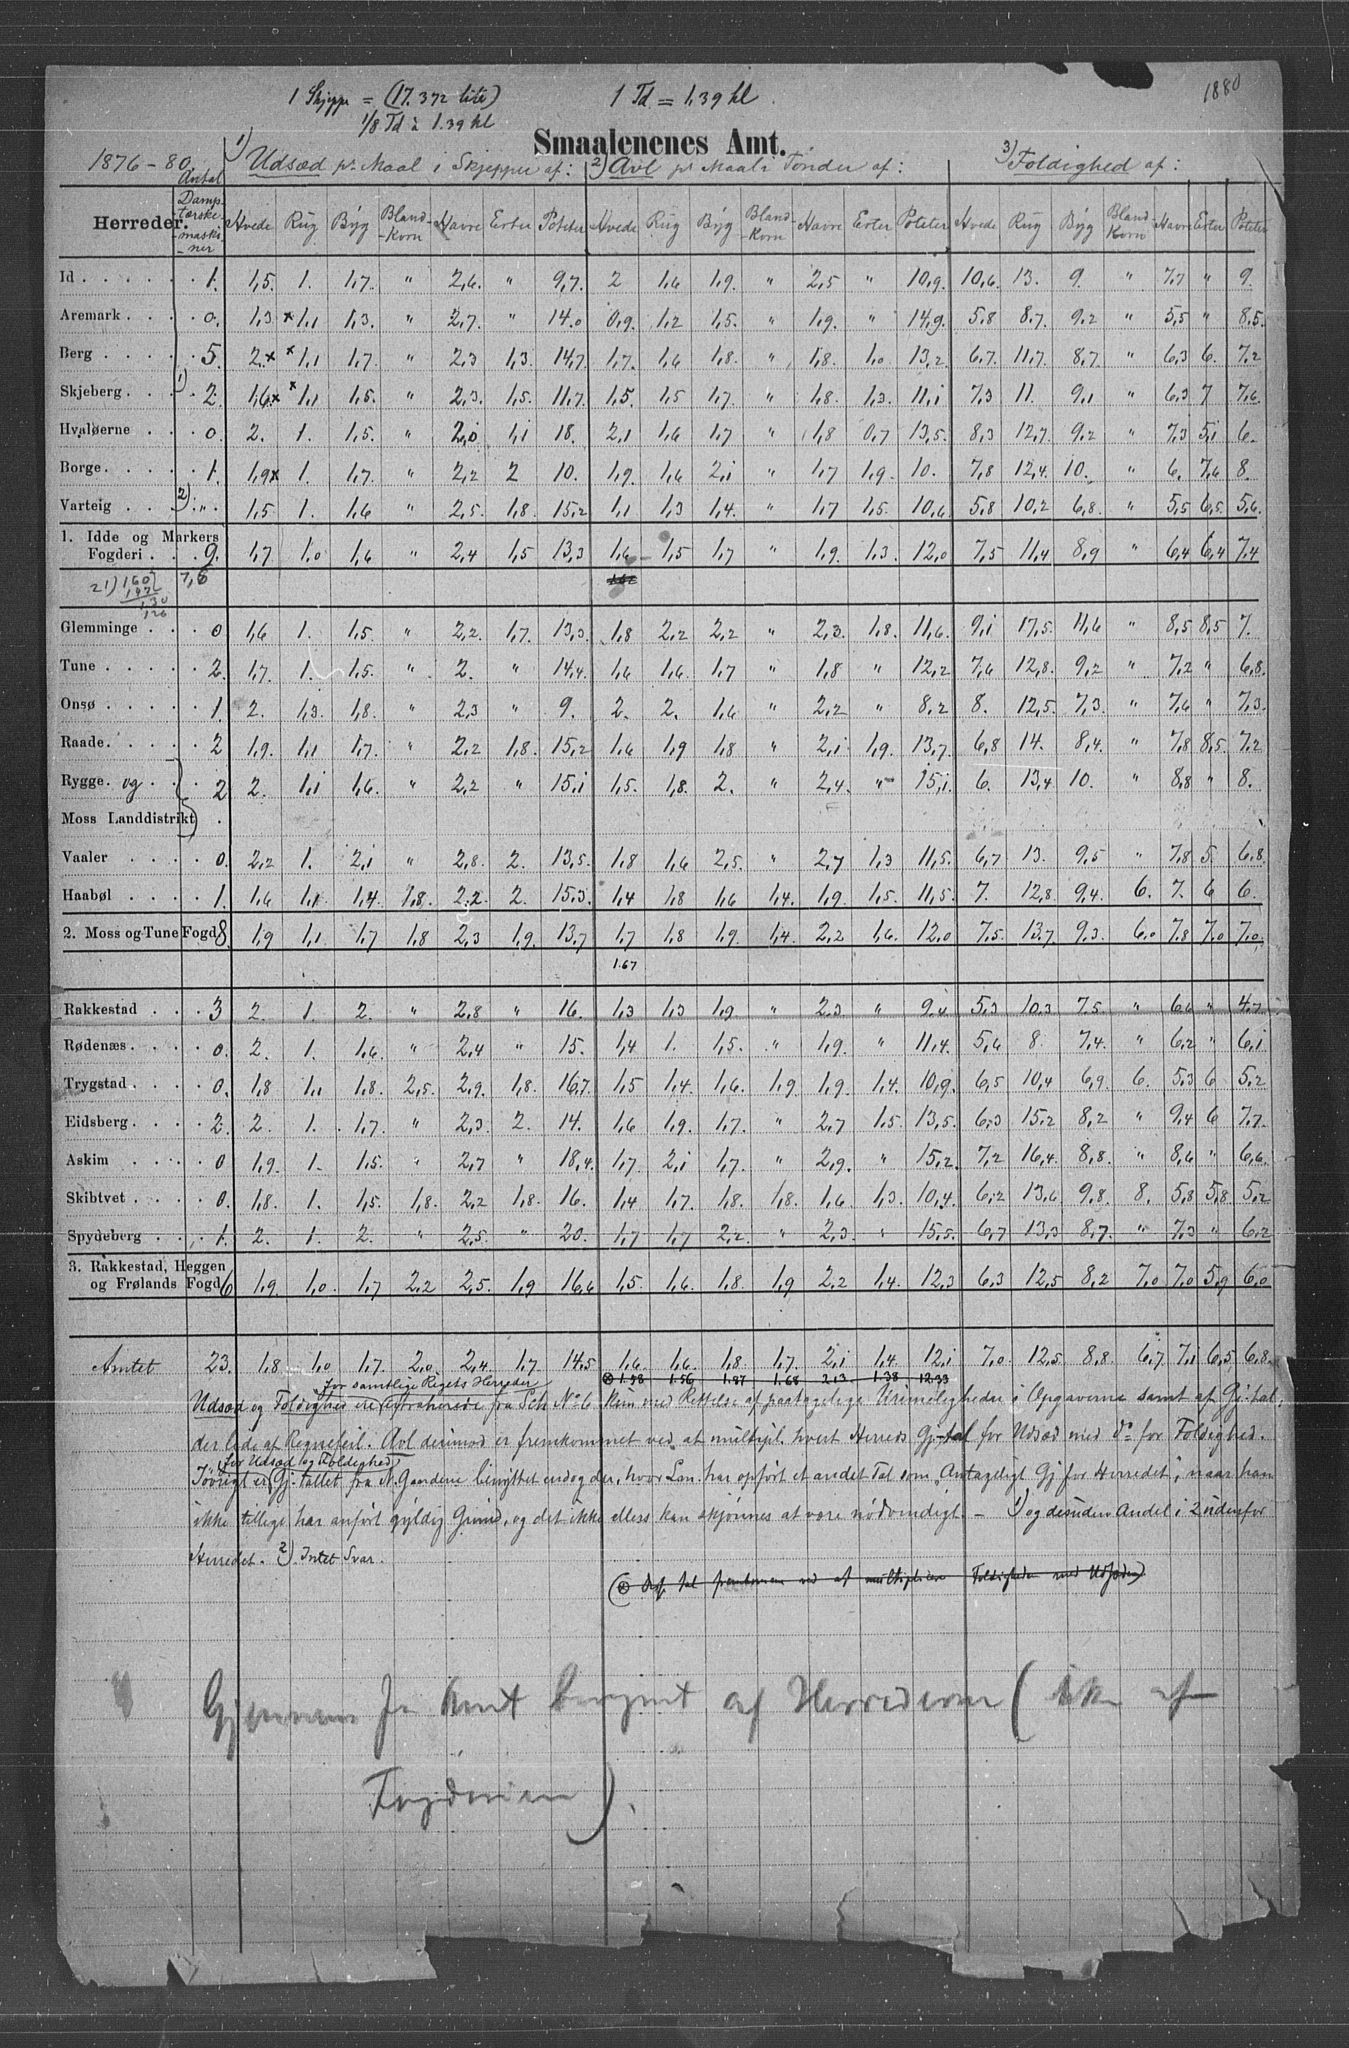 1880
1 Skjeppe = (17.372 liter) 1 Td = 1,39 hl.
1/8 Td à 1.39 hl
Smaalenenes Amt.
1876-80. 1) Udsæd pr Maal i Skjepper af: 2) Avl pr Maal i Tønder af: 3) Foldighed af:
Herreder. Antal Damp- tærske- maski- ner Hvede Rug Byg Bland- -korn Havre Erter Poteter Hvede Rug Byg Bland- -korn Havre Erter Poteter Hvede Rug Byg Bland- korn Havre Erter Poteter
Id 1. 1,5. 1. 1,7. " 2,6. " 9,7. 2 1,6 1,9. " 2,5 " 10,9. 10,6. 13. 9. " 7,7 " 9.
Aremark 0. 1,3 × 1,1 1,3. " 2,7. " 14.0 0,9. 1,2 1,5. " 1,9. " 14,9. 5.8 8,7. 9,2 " 5,5 " 8,5.
Berg 5. 2.× × 1,1 1,7. " 2,3 1,3. 14,7 1,7. 1,6 1,8. " 1,8. 1,0 13,2 6,7. 11,7. 8,7. " 6,3 6. 7,2
Skjeberg 1) 2. 1,6.× × 1,1 1,5. " 2,3. 1,5. 11,7. 1,5. 1,5 1,7. " 1,8. 1,3. 11,1 7,3 11. 9,1 " 6,3 7 7,6.
Hvaløerne 0. 2. 1. 1,5. " 2,0 1,1 18. 2,1 1,6 1,7 " 1,8 0,7 13,5. 8,3 12,7. 9,2 " 7,3 5,1 6.
Borge 1. 1,9× 1. 1,7. " 2,2 2 10. 1,9. 1,6 2,1 " 1,7 1,9. 10. 7,8 12,4. 10. " 6. 7,6 8.
Varteig 2) " 1,5 1. 1,6 " 2,5. 1,8. 15,2 1,1 1,3 1,4. " 1,7 1,5. 10,6. 5,8 10,2 6,8. " 5,5 6,5. 5,6.
1. Idde og Markers
Fogderi 9. 1,7 1,0 1,6 " 2,4 1,5 13,3 1,6 1,5 1,7 " 1,9. 1,3. 12,0 7,5 11,4 8,9 " 6,4 6,4 7,4
Glemminge 0 1,6 1. 1,5. " 2,2. 1,7. 13,3. 1,8 2,2 2,2 " 2,3. 1,8. 11,6. 9,1 17,5. 11,6 " 8,5 8,5 7.
Tune 2. 1,7. 1. 1,5. " 2. " 14,4. 1,6 1,6. 1,7 " 1,8 " 12,2 7,6 12,8. 9,2 " 7,2 " 6,8.
Onsø 1. 2. 1,3. 1,8. " 2,3 " 9. 2. 2. 1,6 " 2,2 " 8,2 8. 12,5. 7,3. " 7,6 " 7,3.
Raade 2 1,9. 1,1 1,7. " 2,2 1,8. 15,2 1,6 1,9 1,8 " 2,1 1,9. 13,7. 6,8 14. 8,4. " 7,8 8,5. 7,2
Rygge og 2 2. 1,1 1,6. " 2,2 " 15,1 1,5. 1,8. 2. " 2,4. " 15,1. 6. 13,4 10. " 8,8 " 8.
Moss Landdistrikt
Vaaler 0. 2,2 1. 2,1 " 2,8. 2. 13,5. 1,8 1,6 2,5. " 2,7 1,3 11,5. 6,7 13. 9,5 " 7,8 5. 6,8.
Haabøl 1. 1,6 1,1 1,4. 1,8. 2,2 2 15,3. 1,4 1,8 1,6 1,4. 1,9. 1,5. 11,5. 7. 12,8 9,4. 6. 7. 6 6.
2. Moss og Tune Fogd. 8. 1,9 1,1 1,7 1,8 2,3 1,9. 13,7 1,7 1,8 1,9. 1,4. 2,2 1,6. 12,0 7,5. 13,7. 9,3. 6,0 7,8 7,0 7,0
1.67
Rakkestad 3 2. 1. 2. " 2,8 " 16. 1,3 1,3 1,9 " 2,3 " 9,4 5,3 10,3 7,5. " 6,6 " 4,7.
Rødenæs 0. 2. 1. 1,6. " 2,4 " 15. 1,4 1. 1,5. " 1,9. " 11,4. 5,6 8. 7,4. " 6,2 " 6,1
Trygstad 0. 1,8 1,1 1,8. 2,5. 2,9. 1,8. 16,7. 1,5 1,4. 1,6. 1,9 1,9. 1,4. 10,9. 6,5 10,4 6,9. 6. 5,3 6 5,2
Eidsberg 2. 2. 1. 1,7. " 2,3. 2. 14. 1,6 1,9. 1,7. " 2,7 1,5 13,5. 6,3 15,2 8,2 " 9,4 6 7,7.
Askim 0 1,9. 1. 1,5. " 2,7 " 18,4. 1,7. 2,1 1,7. " 2,9. " 15,2. 7,2 16,4. 8,8. " 8,6 " 6,6.
Skibtvet 0. 1,8. 1. 1,5. 1,8. 2,2 1,8. 16. 1,4 1,7. 1,8. 1,8. 1,6 1,3. 10,4. 6,2 13,6 9,8. 8. 5,8 5,8 5,2
Spydeberg 1. 2. 1. 2. " 2,5. " 20. 1,7 1,7 2,2. " 2,3. " 15,5. 6,7 13,3 8,7. " 7,3 " 6,2
3. Rakkestad, Heggen
og Frølands Fogd. 6 1,9. 1,0. 1,7 2,2 2,5. 1,9 16,6 1,5. 1,6. 1,8. 1,9 2,2 1,4. 12,3 6,3 12,5 8,2 7,0 7,0 5,9 6,0
Amtet 23. 1,8. 1,0 1,7. 2,0 2,4. 1,7 14,5 1,6. 1,6. 1,8 1,7. 2,1 1,4. 12,1 7,0. 12,5 8,8 6,7 7,1 6,5 6,8.
for samtlige Rigets Herreder 1.58 1.56 1.87 1.68 2.13 1.38 12.33
Udsæd og Foldighed ere extraherede fra Sch. No 6 kun med Rettelse af paatagelige Urimeligheder i Opgaverne samt af Gj.tal,
der lede af Regnefeil. Avl derimod er fremkommet ved at multipl. hvert Herreds Gj-tal for Udsæd med do for Foldighed.
for Udsæd og Foldighed
Iøvrigt er Gj-tallet fra N. Gaardene benyttet endog der, hvor Lm. har opført et andet Tal som "Antageligt Gj. for Herredet", naar han
ikke tillige har anført gyldig Grund, og det ikke ellers kan skjønnes at være nødvendigt. - 1) og desuden Andel i 2 udenfor
Herredet. 2) Intet Svar.
tal fremkommen ved at multiplicere Foldigheden med Udsæden)
Gjennem for Amt beregnet af Herrederne (ikke af
Fogderierne).